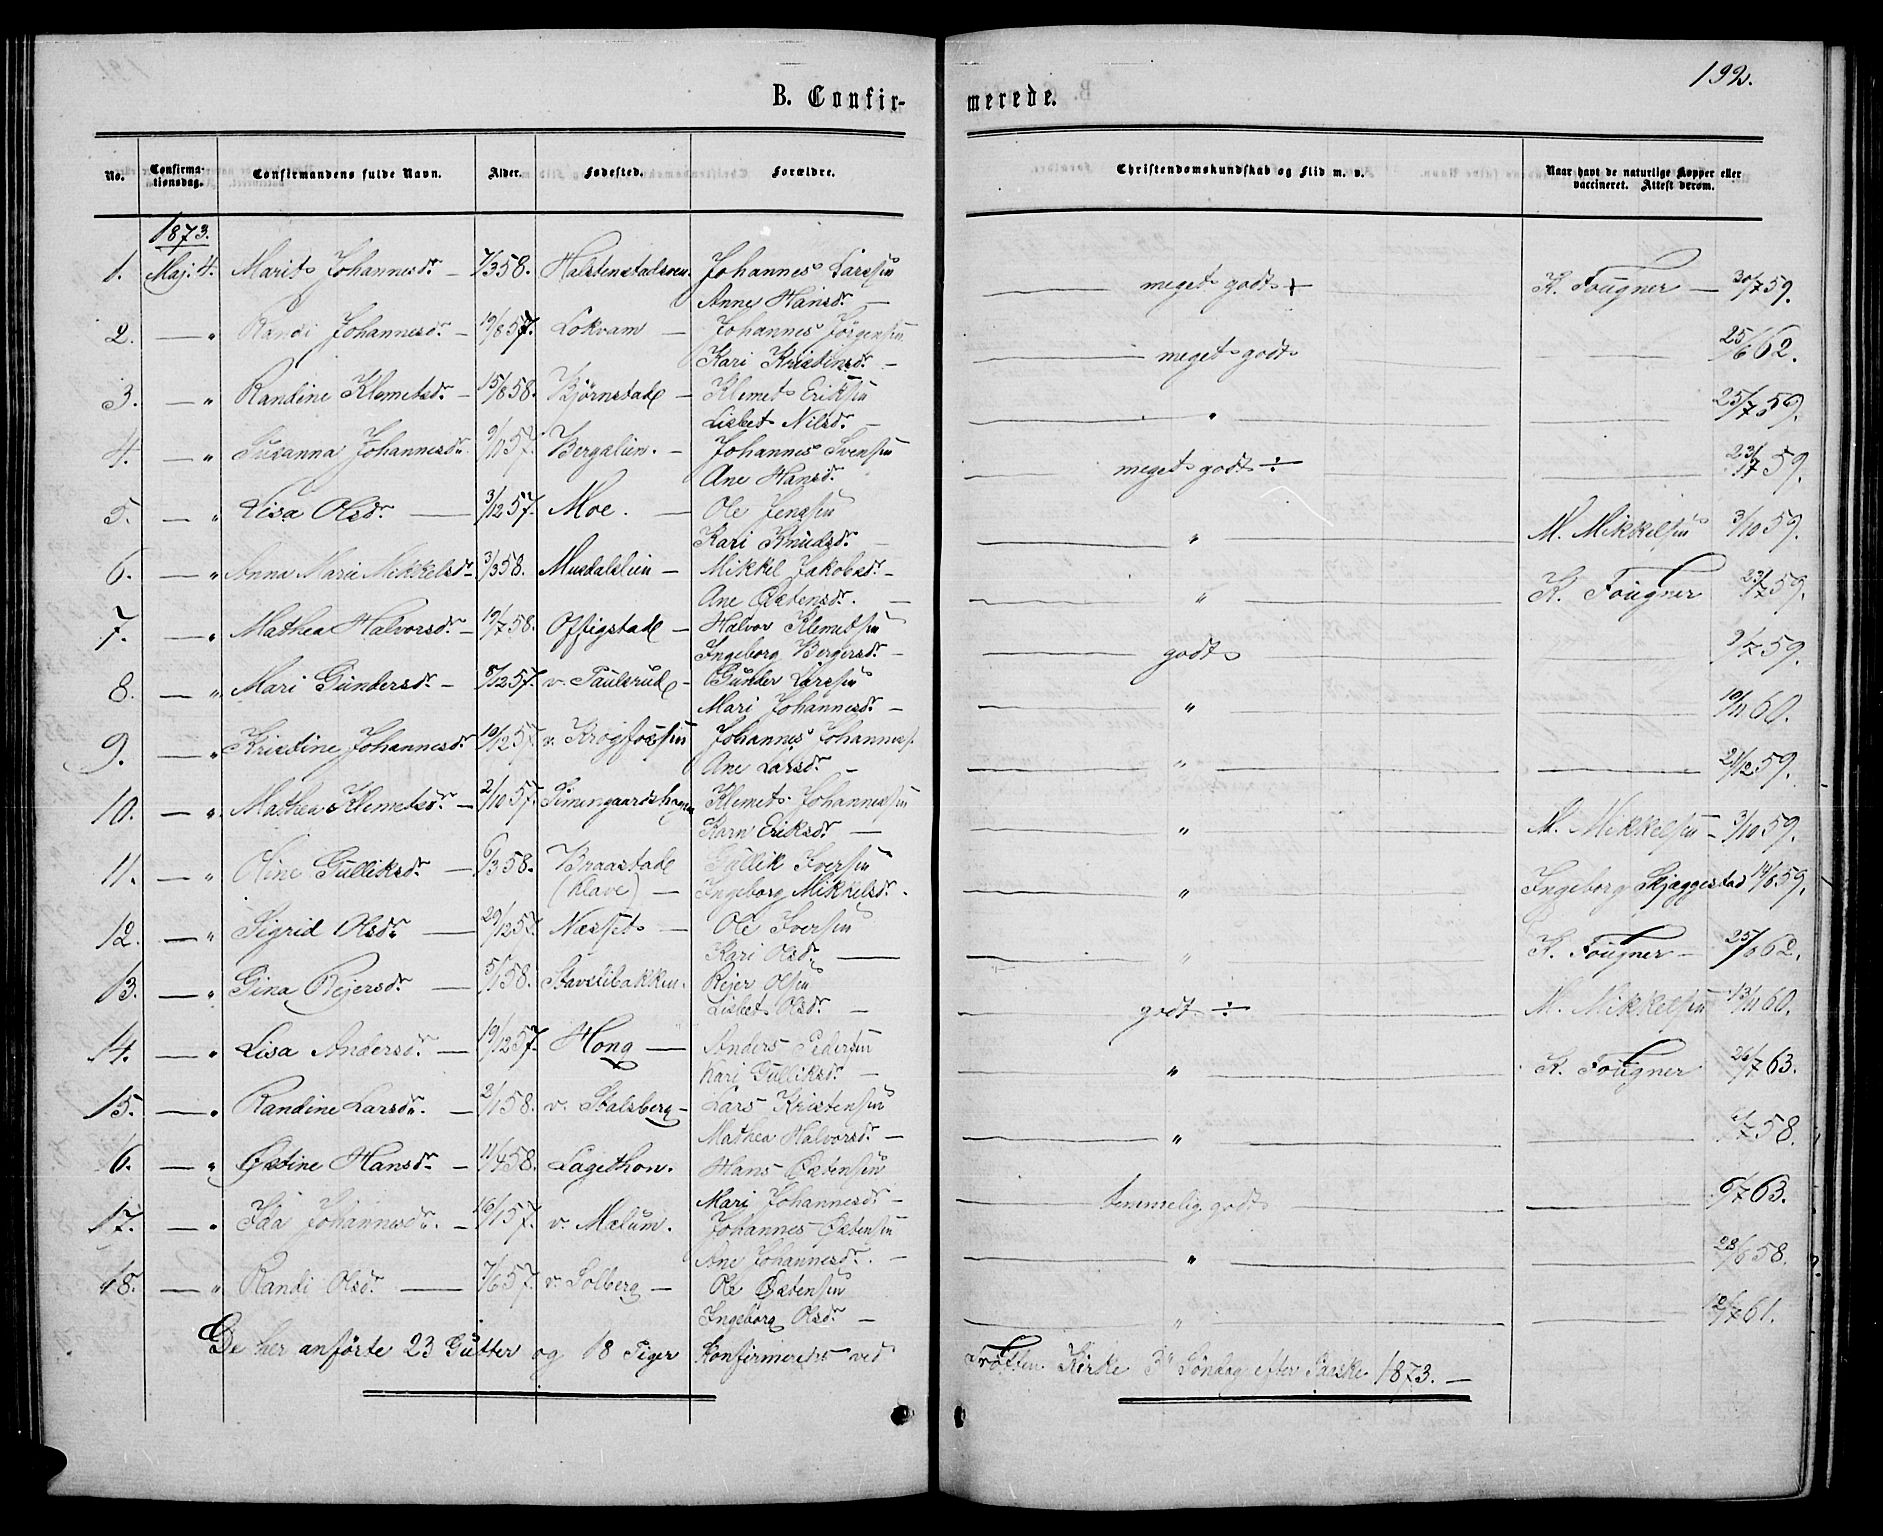 192.
B. Confirmerede.
No. Confirmationsdag. Confirmandens fulde Navn. Alder. Fødested. Forældre. Christendomskundskab og Flid m. v. Naar havt de naturlige Kopper eller vaccineret. Attest derom.
1873.
1. Maj. 4. Marit Johannesdr. — 7/3 58. Halstenstadsven. Johannes Larssen
Anne Hansdr. — meget godt + K. Fougner — 30/7 59.
2. — " Randi Johannesdr. — 19/8 57. Lokvam — Johannes Jørgensen
Kari Kristensdr. — meget godt 25/6 62.
3. — " Randine Klemetsdr. — 15/8 58. Bjørnstad — Klemet Eriksen
Lisbet Nilsdr. — " 25/7 59.
4. — " Susanna Johannesdr. 57. Bergslien. — Johannes Svensen
Ane Hansdr. meget godt ÷ 23/7 59.
5. — " Lisa Olsdr. — 3/12 57. Moe. — Ole Jensen
Kari Knudsdr. — " M. Mikkelsen 3/10 59.
6. — " Anna Marie Mikkelsdr. 3/3 58. Musdalslien — Mikkel Jakobsen —
Ane Østensdr. — " K. Fougner 23/7 59.
7. — " Mathea Halvorsdr. — 19/7 58. Offigstad — Halvor Klemetsen
Ingeborg Bergersdr. — godt 9/7 59.
8. — " Mari Gundersdr. — 8/12 57. v. Paulsrud — Gunder Larsen
Mari Johannesdr. — " 19/11 60.
9. — " Kristine Johannesdr. 19/12 57. v. Krogfossen Johannes Johanness.
Ane Larsdr. — " 59.
10. — " Mathea Klemetsdr. — 2/10 57. Simengaardshagen Klemet Johannessen
Karn Eriksdr. — " M. Mikkelsen — 3/10 59.
11. — " Oline Gulliksdr. — 6/3 58. Braastad
(Klave) — Gullik Iversen
Ingeborg Mikkelsdr. " Ingeborg Skjæggestad 59.
12. — " Sigrid Olsdr. — 29/12 57. Næsset — Ole Iversen
Kari Olsdr. — " K. Fougner — 25/6 62.
13. — " Gina Rejersdr. — 5/1 58. Stavslibakken. Rejer Olsen
Lisbet Olsdr. — godt ÷ M. Mikkelsen 13/11 60.
14. — " Lisa Andersdr. — 19/12 57. Hong — Anders Pedersen
Kari Gulliksdr. — " K. Fougner 26/7 63.
15. — " Randine Larsdr. — 2/1 58. v. Stalsberg — Lars Kristensen
Mathea Halvorsdr. — " 58.
16. — " Østine Hansdr. — 11/4 58. Lagethon. Hans Østensen
Mari Johannesdr. — temmelig godt 6/7 63.
17. — " Ida Johannesdr. — 16/1 57. v. Mælum. Johannes Østensen
Ane Johannesdr. — " 28/6 58.
18. — " Randi Olsdr. — 7/6 57. v. Solberg — Ole Østensen
Ingeborg Olsdr. — " 61.
De her anførte 23 Gutter og 18 Piger konfirmeredes ved Trøtten Kirke 3die Søndag efter Paaske 1873. —